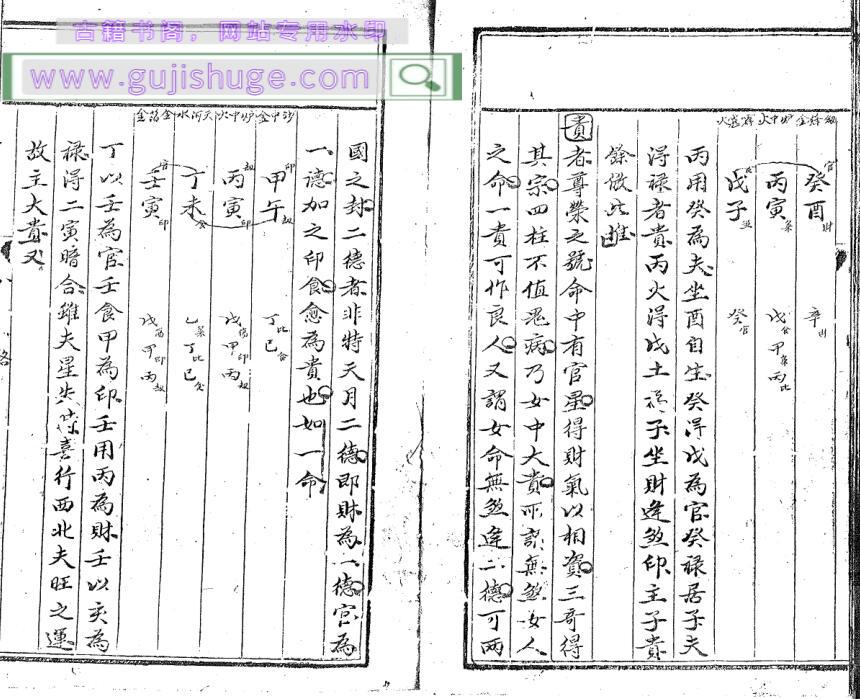 古籍书阁，网站专用水印
www.gujishuge.com
官 癸酉 財 辛
丙寅 戊 甲 丙 比
戊子 癸 官
丙用癸為夫坐酉自生癸得戊為官癸祿居子夫
得祿者貴丙火得戊土 子坐財逢煞印主子貴
餘倣此推
貴者尊榮之號命中有官星得財氣以相資三奇得
其宗四柱不值鬼病乃女中大貴所謂無煞女人
之命一貴可作良人又謂女命無煞逢二德可兩
國之封二德者非特天月二德即財為一德官為
一德加之印食愈為貴也如一命
印 甲午 丁 比 己
丙寅 印 戊 甲 印 丙
丁未 食 乙 丁 比 己 食
壬寅 印 戊 甲 印 丙
丁以壬為官壬食甲為印壬用丙為財壬以亥為
祿得二寅暗合雖夫星失 喜行西北夫旺之運
故主大貴又